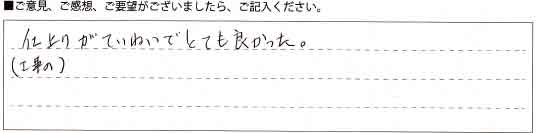 ■ご意見、ご感想、ご要望がございましたら、ご記入ください。
仕上りがていねいでとても良かった。
(工事の)